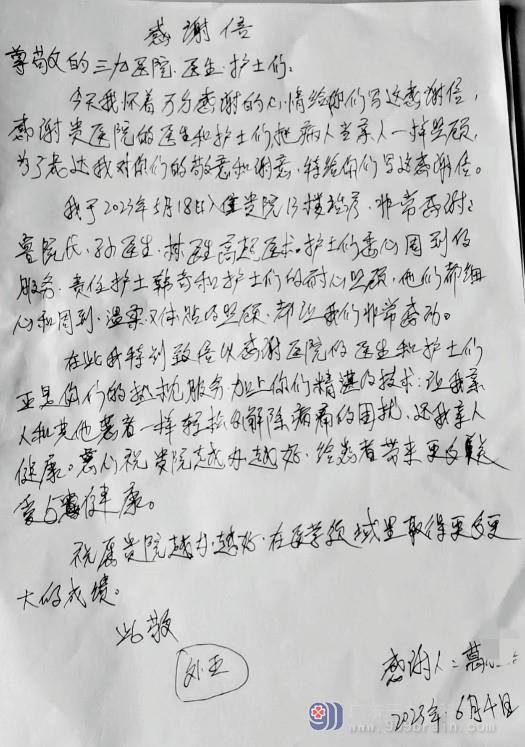 感谢信
尊敬的三九医院.医生护士们:
今天我怀着万分感谢的心情给你们写这感谢信,
感谢贵医院的医生和护士们把病人当亲人一样照顾,
为了表达我对你们的敬意和谢意,特给你们写这感谢信。
我于2023年5月18日入住贵院13楼治疗.非常感谢:
院长、孙医生.林医生高超医术.护士们悉心周到的
服务.责任护士韩奇和护士们的耐心照顾,他们都细
心和周到.温柔又体贴的照顾,都让我们非常感动。
在此我特别致信以感谢医院的医生和护士们
正是你们的热忱服务加上你们精湛的技术:让我亲
人和其他患者一样轻松的解除病痛的困扰,还我亲人
健康。衷心祝贵院越办越好.给患者带来更多关
爱与健康。
祝愿贵院越办越好.在医学领域里取得更多更
大的成绩。
此敬
感谢人:萬
2023年.6月4日
999brain.com